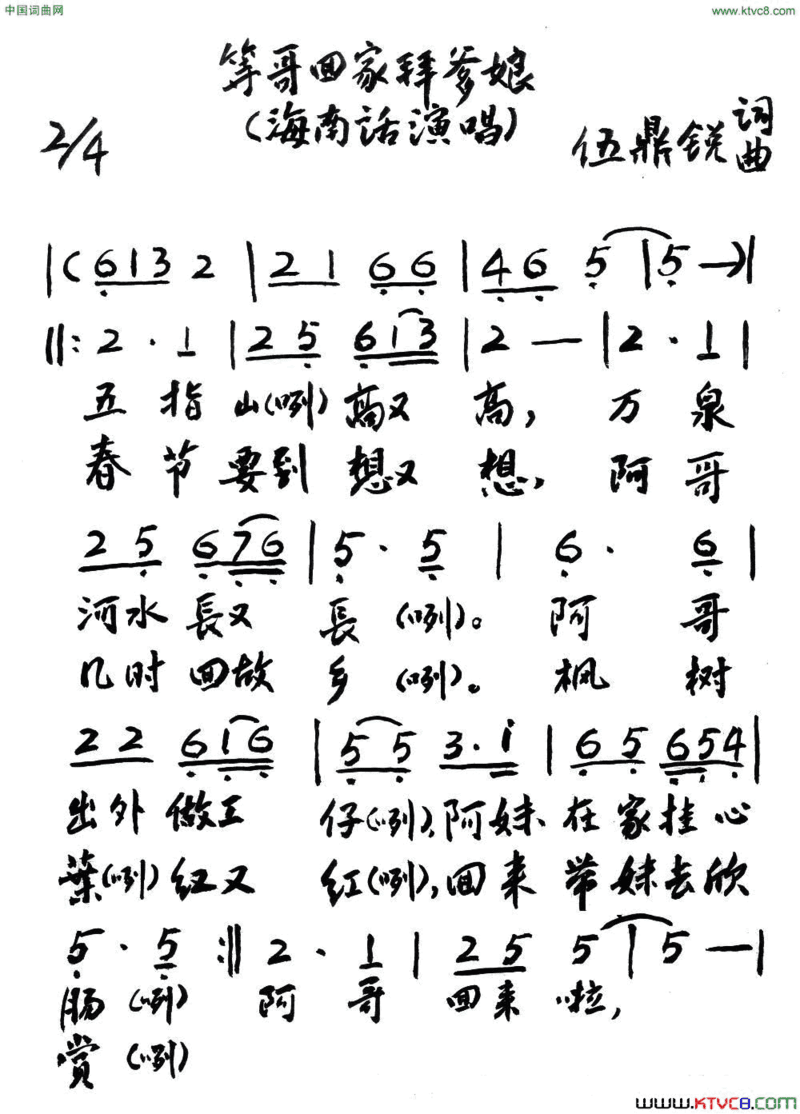 中国词曲网
www.ktvc8.com
等哥回家拜爹娘
(海南话演唱)
2/4
伍鼎锐 词曲
|(6 1 3 2 | 2 1 6 6 | 4 6 5 | 5 —)|
‖: 2 · 1 | 2 5 6 1 3 | 2 — | 2 · 1 |
五指山(咧)高又高,万泉
春节要到想又想,阿哥
2 5 6 7 6 | 5 · 5 | 6 · 6 |
河水長又長(咧)。阿哥
几时回故乡(咧)。枫树
2 2 6 1 6 | 5 5 3 · 1 | 6 5 6 5 4 |
出外做工仔(咧),阿妹在家挂心
葉(咧)红又红(咧),回来带妹去欣
5 · 5 :‖ 2 · 1 | 2 5 5 | 5 — |
肠(咧)阿哥回来啦,
赏(咧)
www.KTVC8.com